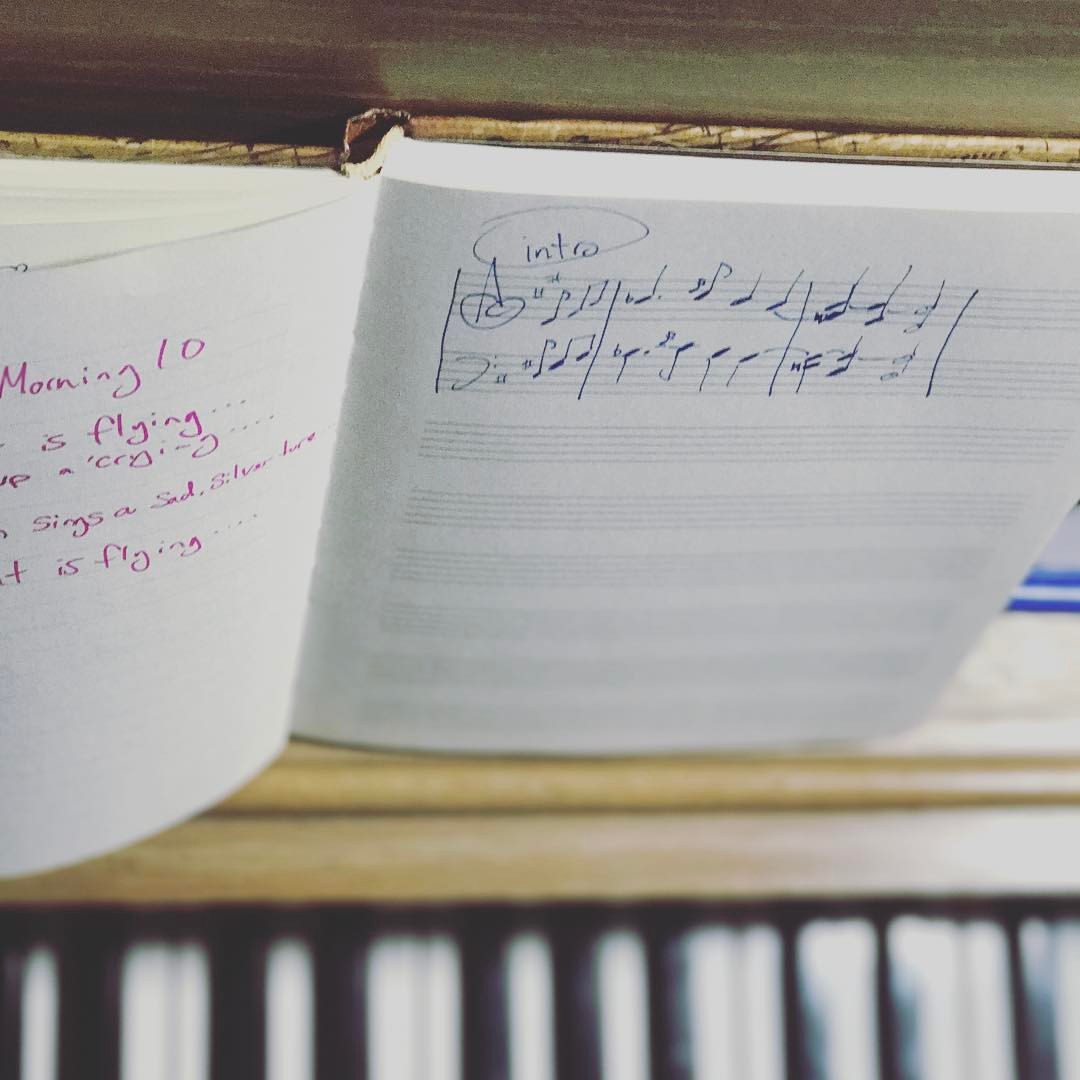 Morning /0
is flying....
a 'crying....
sings a sad, silver tune
is flying....
intro